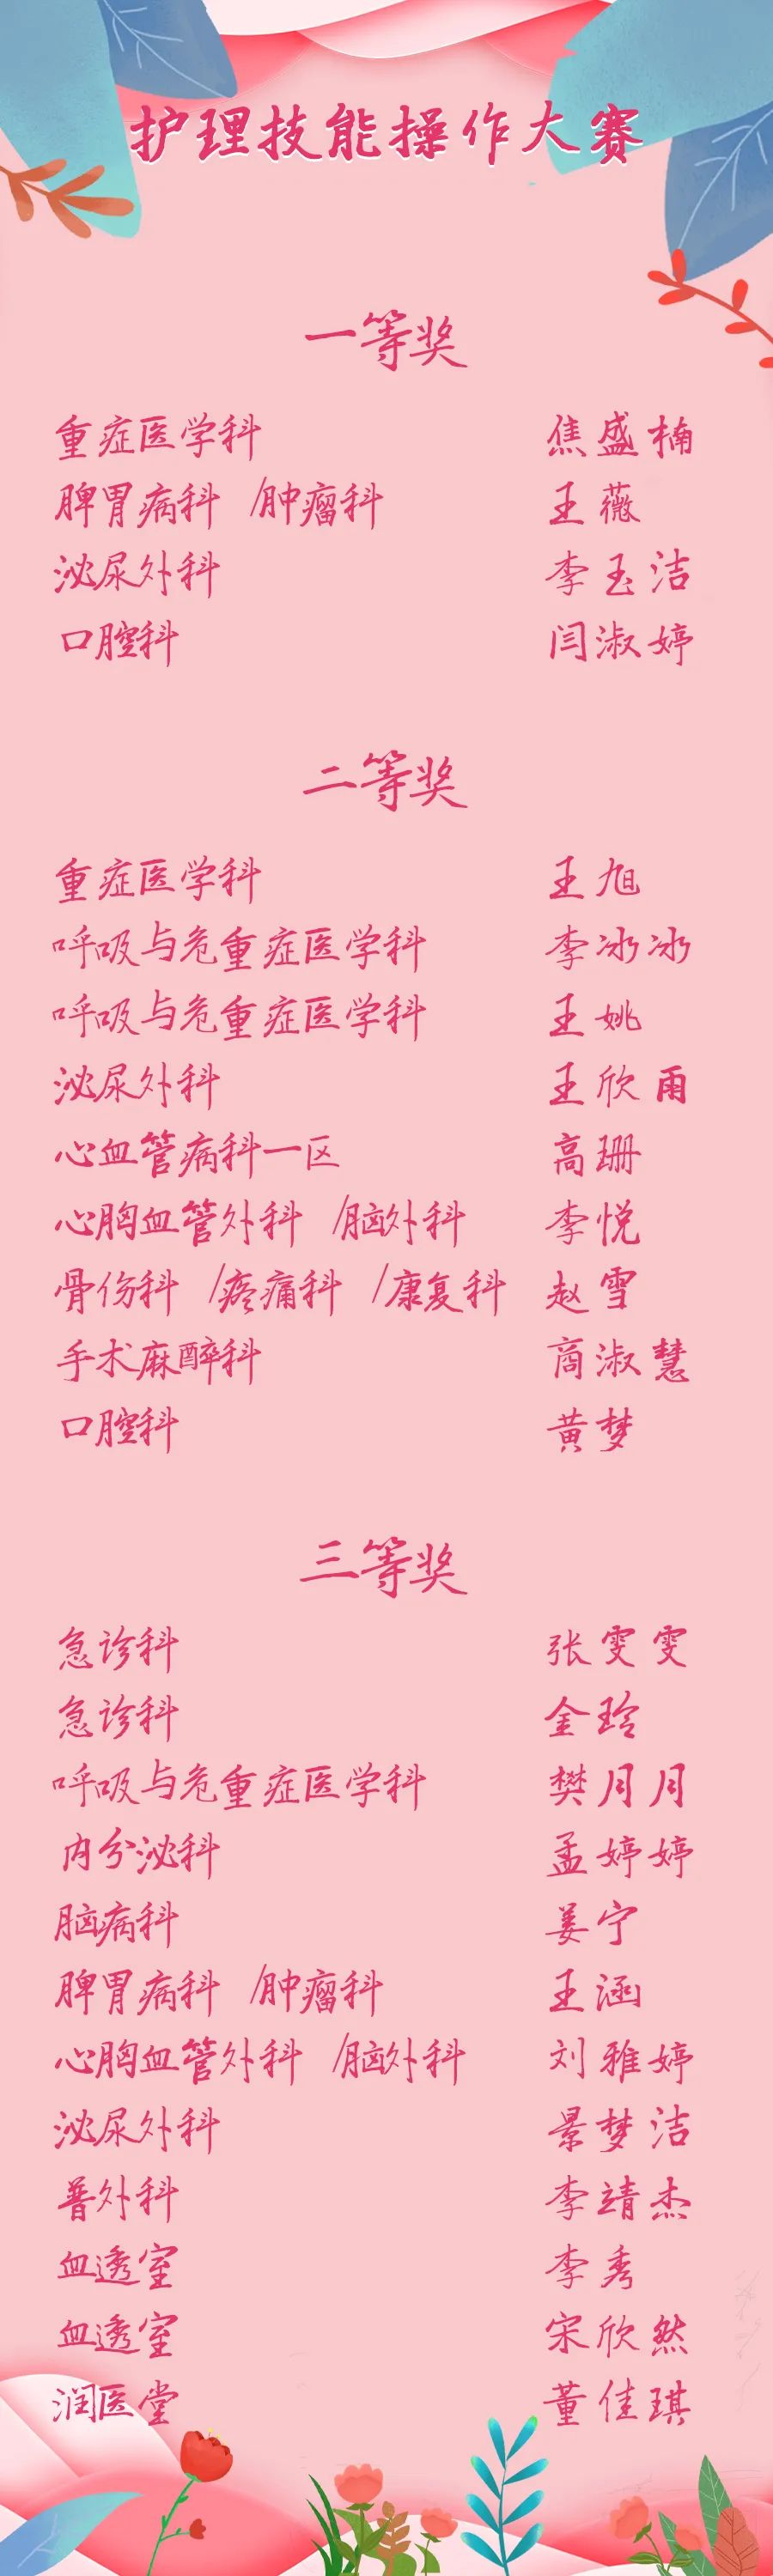 护理技能操作大赛
一等奖
重症医学科 焦盛楠
脾胃病科 /肿瘤科 王薇
泌尿外科 李玉洁
口腔科 闫淑婷
二等奖
重症医学科 王旭
呼吸与危重症医学科 李冰冰
呼吸与危重症医学科 王姚
泌尿外科 王欣雨
心血管病科一区 高珊
心胸血管外科 /脑外科 李悦
骨伤科 /疼痛科 /康复科 赵雪
手术麻醉科 商淑慧
口腔科 黄梦
三等奖
急诊科 张雯雯
急诊科 金玲
呼吸与危重症医学科 樊月月
内分泌科 孟婷婷
脑病科 姜宁
脾胃病科 /肿瘤科 王涵
心胸血管外科 /脑外科 刘雅婷
泌尿外科 景梦洁
普外科 李靖杰
血透室 李秀
血透室 宋欣然
润医堂 董佳琪